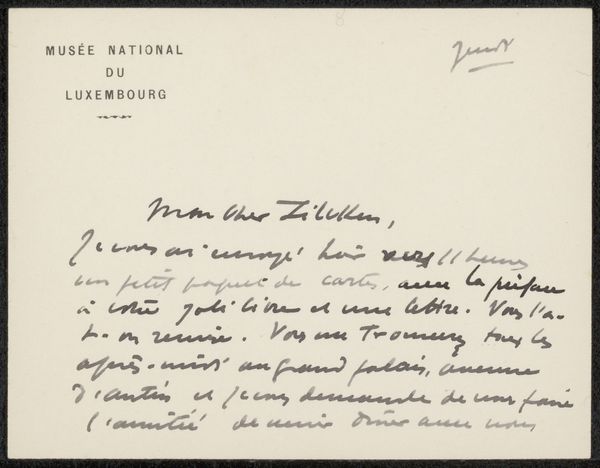 MUSÉE NATIONAL
DU
LUXEMBOURG
jeudi
Mon cher Zilcken,
Je vous ai envoyé hier vers 11 heures
un petit paquet de cartes, avec la préface
à votre joli livre et une lettre. Vous l'a-
t-on remise. Vous me trouverez tous les
après-midi au grand palais, avenue
d'antin et je vous demande de nous faire
l'amitié de venir dîner avec nous